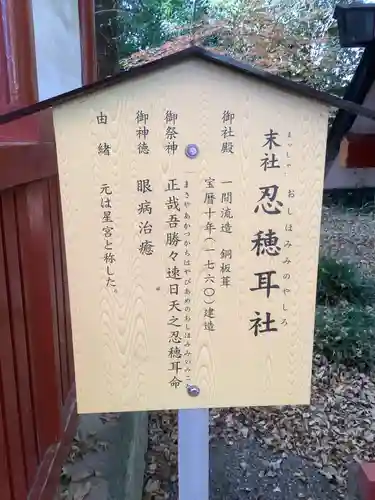 まっしゃ おしほみみのやしろ
末社 忍穂耳社
御社殿 一間流造 銅板葺
宝暦十年(一七六〇)建造
御祭神 正哉吾勝々速日天之忍穂耳命
まさやあかつかちはやびあめのおしほみみのみこと
御神徳 眼病治癒
由緒 元は星宮と称した。